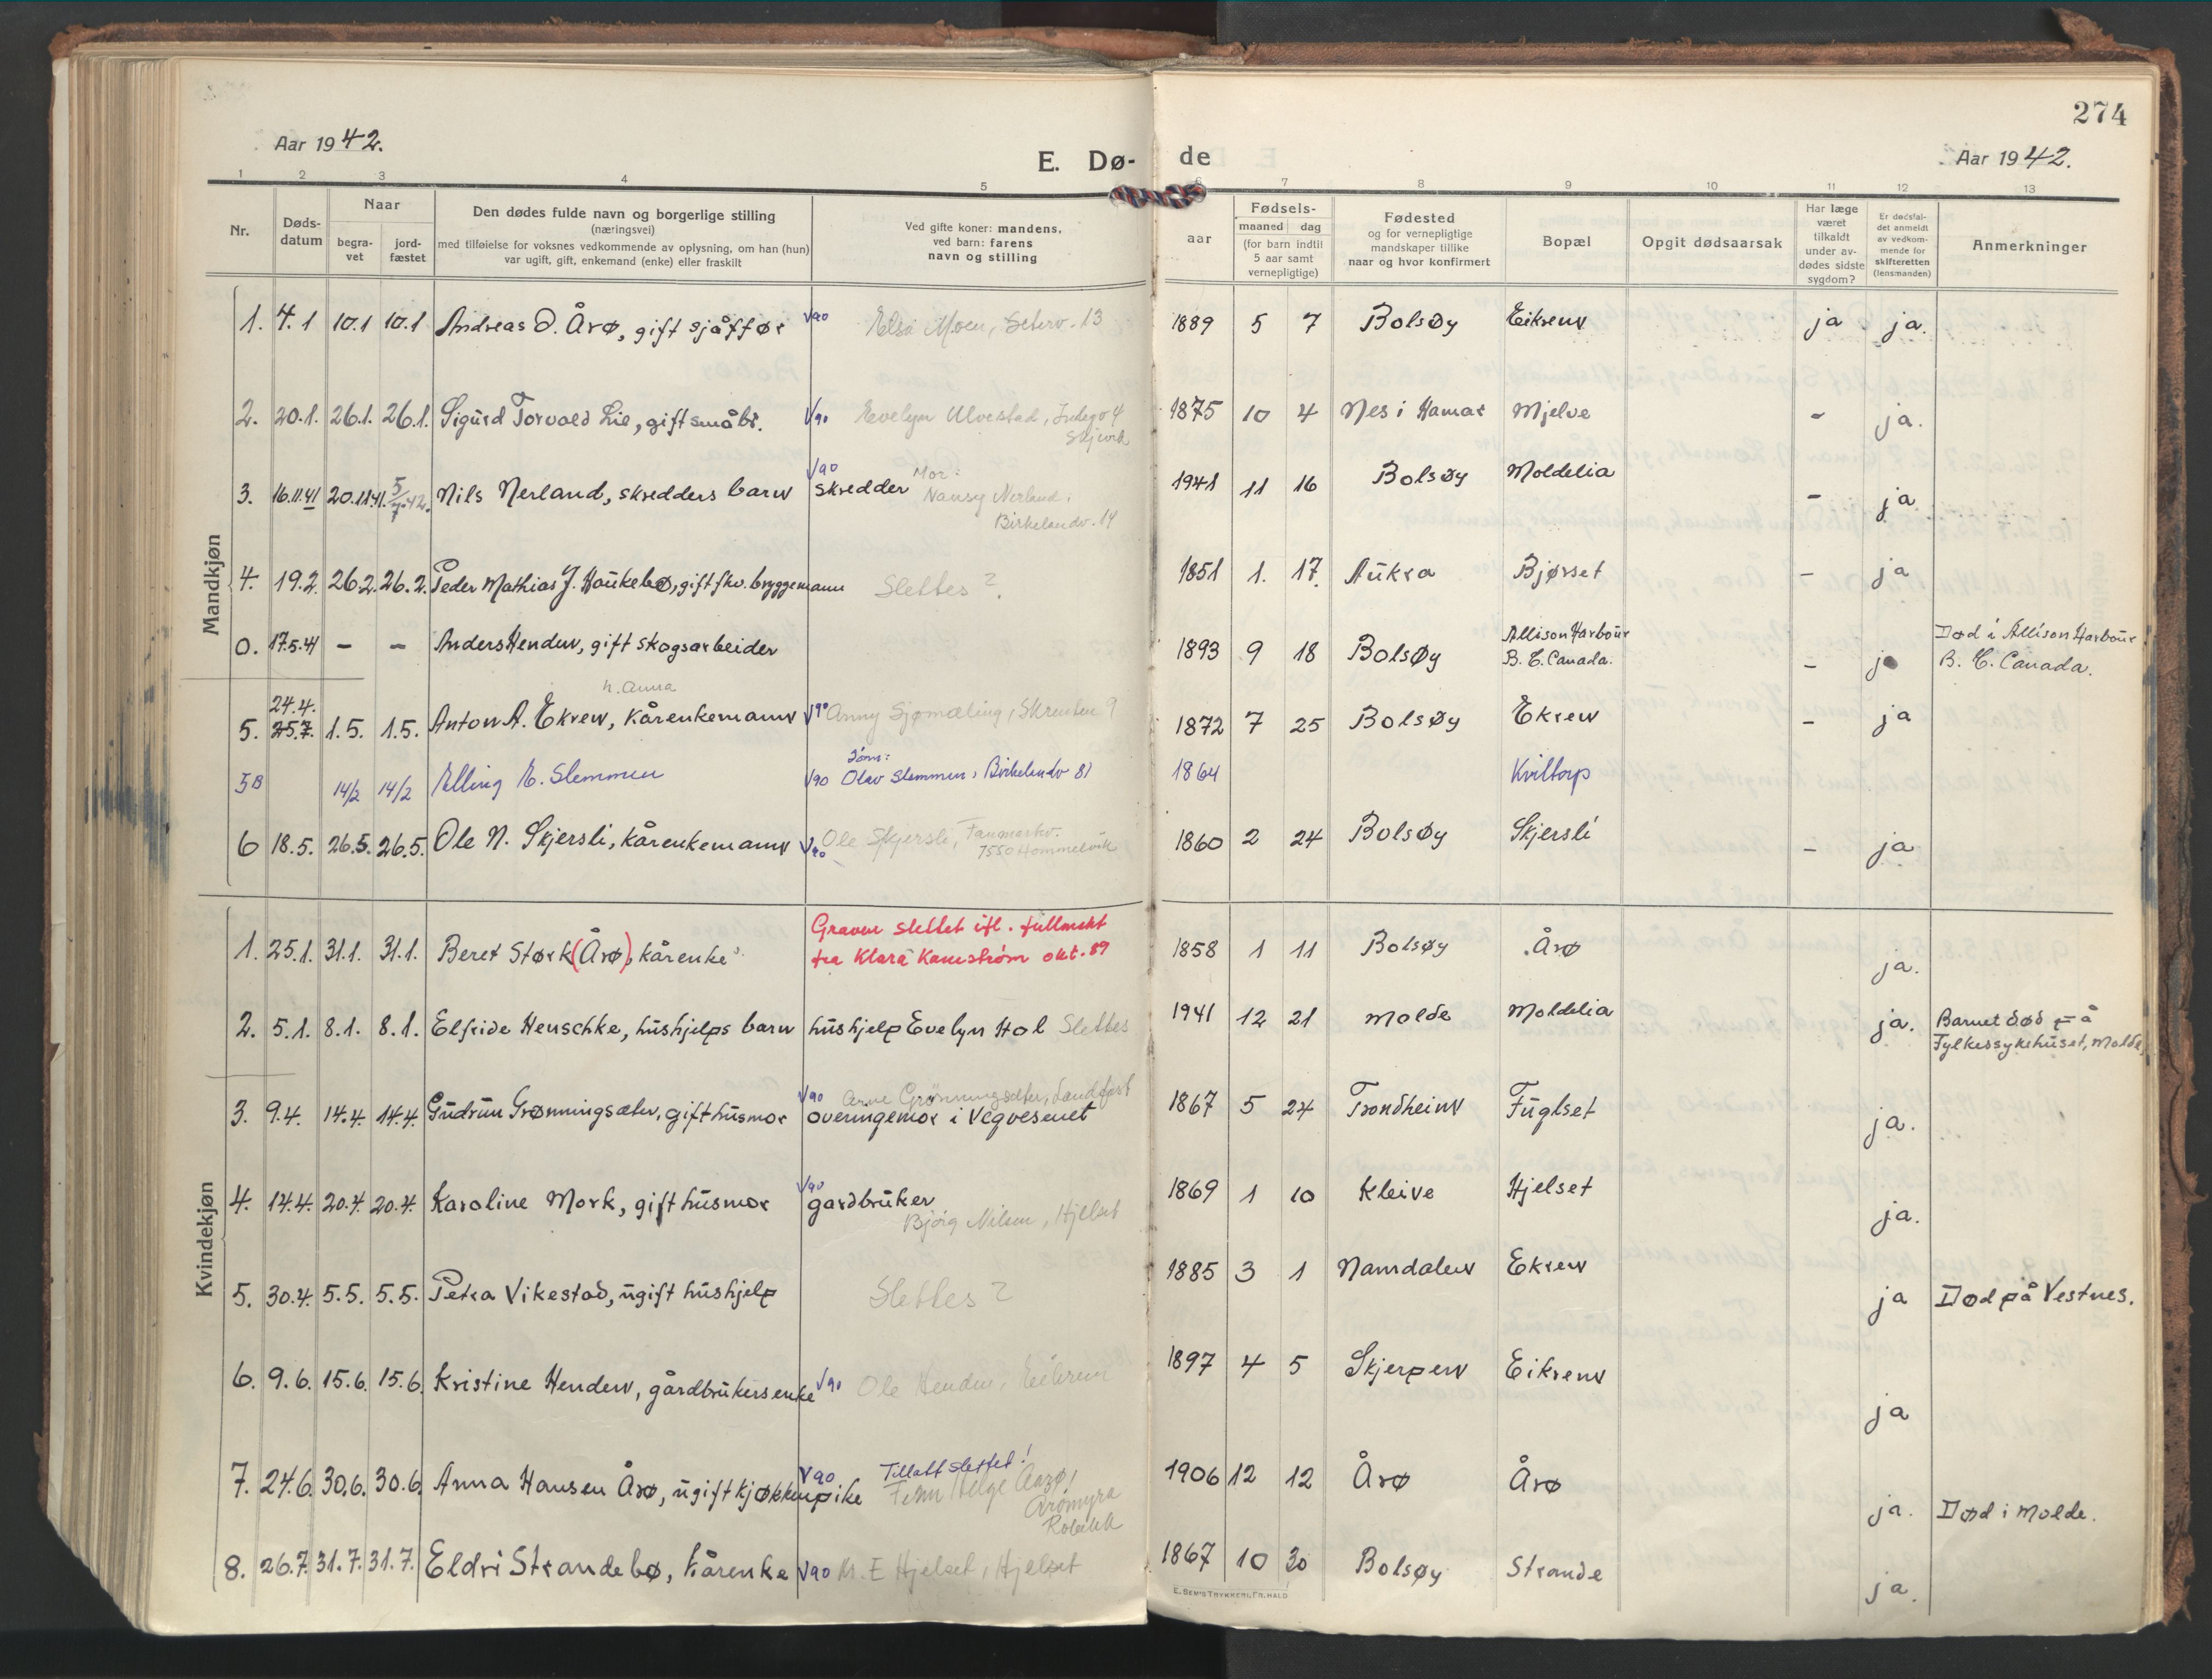 274
Aar 1942.
E. Dø-
de
Aar 1942.
1 2 3 4 5 6 7 8 9 10 11 12 13
Nr.
Døds-
datum
Naar
begra-
vet
jord-
fæstet
Den dødes fulde navn og borgerlige stilling
(næringsvei)
med tilføielse for voksnes vedkommende av oplysning, om han (hun)
var ugift, gift, enkemand (enke) eller fraskilt
Ved gifte koner: mandens,
ved barn: farens
navn og stilling
Fødsels-
aar
maaned dag
(for barn indtil
5 aar samt
vernepligtige)
Fødested
og for vernepligtige
mandskaper tillike
naar og hvor konfirmert
Bopæl
Opgit dødsaarsak
Har læge
været
tilkaldt
under av-
dødes sidste
sygdom?
Er dødsfal-
det anmeldt
av vedkom-
mende for
skifteretten
(lensmanden)
Anmerkninger
Mandkjøn
1. 4.1 10.1 10.1 Andreas O. Årø, gift sjåffør V90 Elsa Moen, Seterv. 13 1889 5 7 Bolsøy Eikrem ja ja.
2. 20.1. 26.1. 26.1. Sigurd Torvald Lie, gift småbr. V90 Evelyn Ulvestad, 1875 10 4 Nes i Hamar Mjelve - ja.
3. 16.11.41 20.11.41. 5/7.42. Nils Nerland, skredders barn V90 skredder Mor:
Nansy Nerland,
Birkelandv. 14 1941 11 16 Bolsøy Moldelia - ja
4. 19.2. 26.2. 26.2. Peder Mathias J. Haukebø, gift fhv. bryggemann Slettes ? 1851 1. 17. Aukra Bjørset - ja
0. 17.5.41 - - Anders Henden, gift skogsarbeider 1893 9 18 Bolsøy Allison Harbour
B. C. Canada. - ja Død i Allison Harbour
B. C. Canada.
5. 24.4.
25.7. 1.5. 1.5. Anton A. Ekrem, kårenkemann V90 Anny Sjømæling, Skrenten 9 1872 7 25 Bolsøy Ekrem - ja
5B 14/2 14/2 Elling E. Slemmen V90 Sønn:
Olav Slemmen, Birkelandv 81 1864 Kviltorp
6 18.5. 26.5. 26.5. Ole N. Skjersli, kårenkemann V90 Ole Skjersli,
7550 Hommelvik 1860 2 24 Bolsøy Skjersli - ja
Kvindekjøn
1. 25.1. 31.1. 31.1. Beret Størk (Årø), kårenke Graven slettet ifl. fullmakt
fra Klara Kamstrøm okt. 89 1858 1 11 Bolsøy Årø ja.
2. 5.1. 8.1. 8.1. Elfride Henschke, hushjelps barn hushjelp Evelyn Hol Slettes 1941 12 21 Molde Moldelia ja. Barnet død på
Fylkessykehuset, Molde,
3. 9.4. 14.4. 14.4. Gudrun Grønningsæter, gift husmor V90 Arne Grönningsæter, Landfast
overingeniør i Vegvesenet 1867 5 24 Trondheim Fuglset ja.
4. 14.4. 20.4. 20.4. Karoline Mork, gift husmor V90 gardbruker
Bjørg Nilsen, Hjelset 1869 1 10 Kleive Hjelset ja.
5. 30.4. 5.5. 5.5. Petra Vikestad, ugift hushjelp Slettes ? 1885 3 1 Namdalen Ekrem ja Død på Vestnes.
6. 9.6. 15.6. 15.6. Kristine Henden, gårdbrukersenke V90 Ole Henden, Eikrem 1897 4 5 Skjerpen Eikrem ja
7. 24.6. 30.6. 30.6. Anna Hansen Årø, ugift kjøkkenpike V90 Tillatt slettet!
Finn Helge Aarø,
Årømyra
Røbekk 1906 12 12 Årø Årø ja. Død i Molde.
8. 26.7. 31.7. 31.7. Eldri Strandebø, kårenke V90 M. E Hjelset, Hjelset 1867 10 30 Bolsøy Strande ja.
E. SEM'S TRYKKERI, FR. HALD